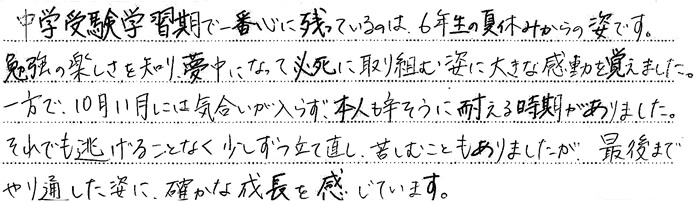 中学受験学習期で一番心に残っているのは、6年生の夏休みからの姿です。
勉強の楽しさを知り、夢中になって必死に取り組む姿に大きな感動を覚えました。
一方で、10月11月には気合いが入らず、本人も辛そうに耐える時期がありました。
それでも逃げることなく少しずつ立て直し、苦しむこともありましたが、最後まで
やり通した姿に、確かな成長を感じています。